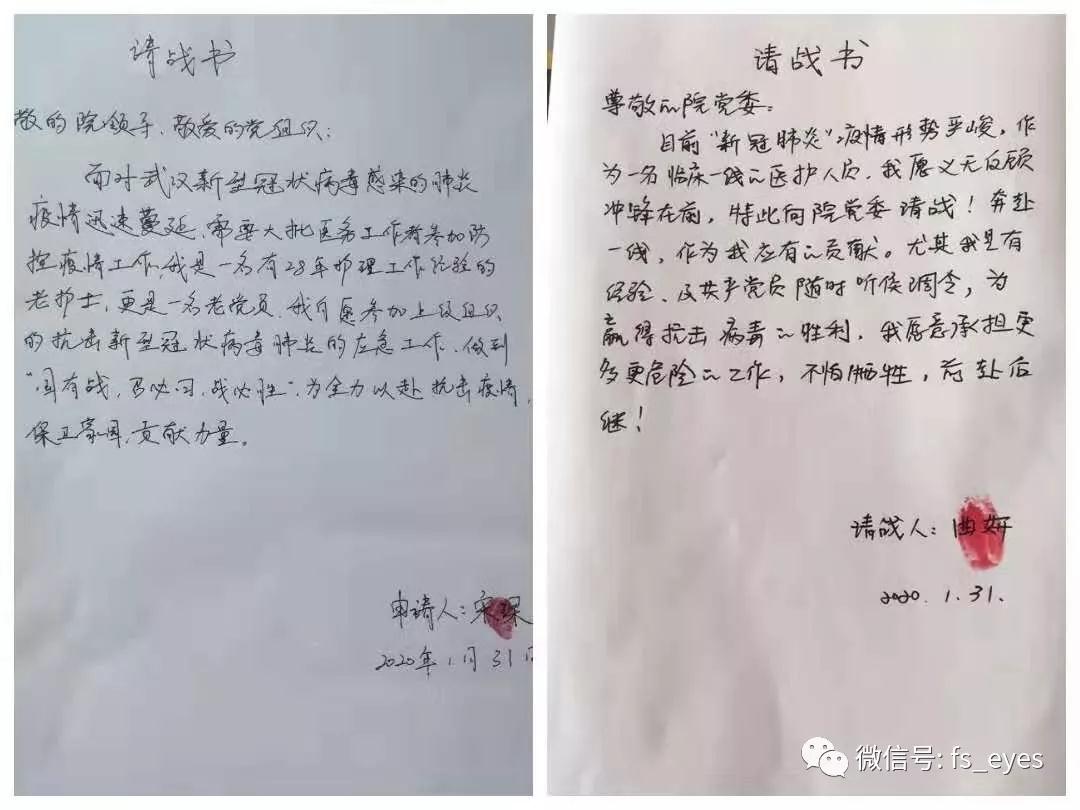 请战书
敬的院领导、敬爱的党组织:
面对武汉新型冠状病毒感染的肺炎
疫情迅速蔓延,需要大批医务工作者参加防
控疫情工作,我是一名有28年护理工作经验的
老护士,更是一名老党员,我自愿参加上级组织
的抗击新型冠状病毒肺炎的应急工作,做到
“若有战,召必回,战必胜”,为全力以赴抗击疫情,
保卫家园,贡献力量。
申请人:宋
2020年1月31日
请战书
尊敬的院党委:
目前“新冠肺炎”疫情形势严峻,作
为一名临床一线的医护人员,我愿义无反顾
冲锋在前,特此向院党委请战!奔赴
一线,作为我应有的贡献。尤其我是有
经验、及共产党员随时听候调令,为
赢得抗击病毒的胜利,我愿意承担更
多更危险的工作,不怕牺牲,前赴后
继!
请战人:曲妍
2020.1.31.
微信号: fs_eyes